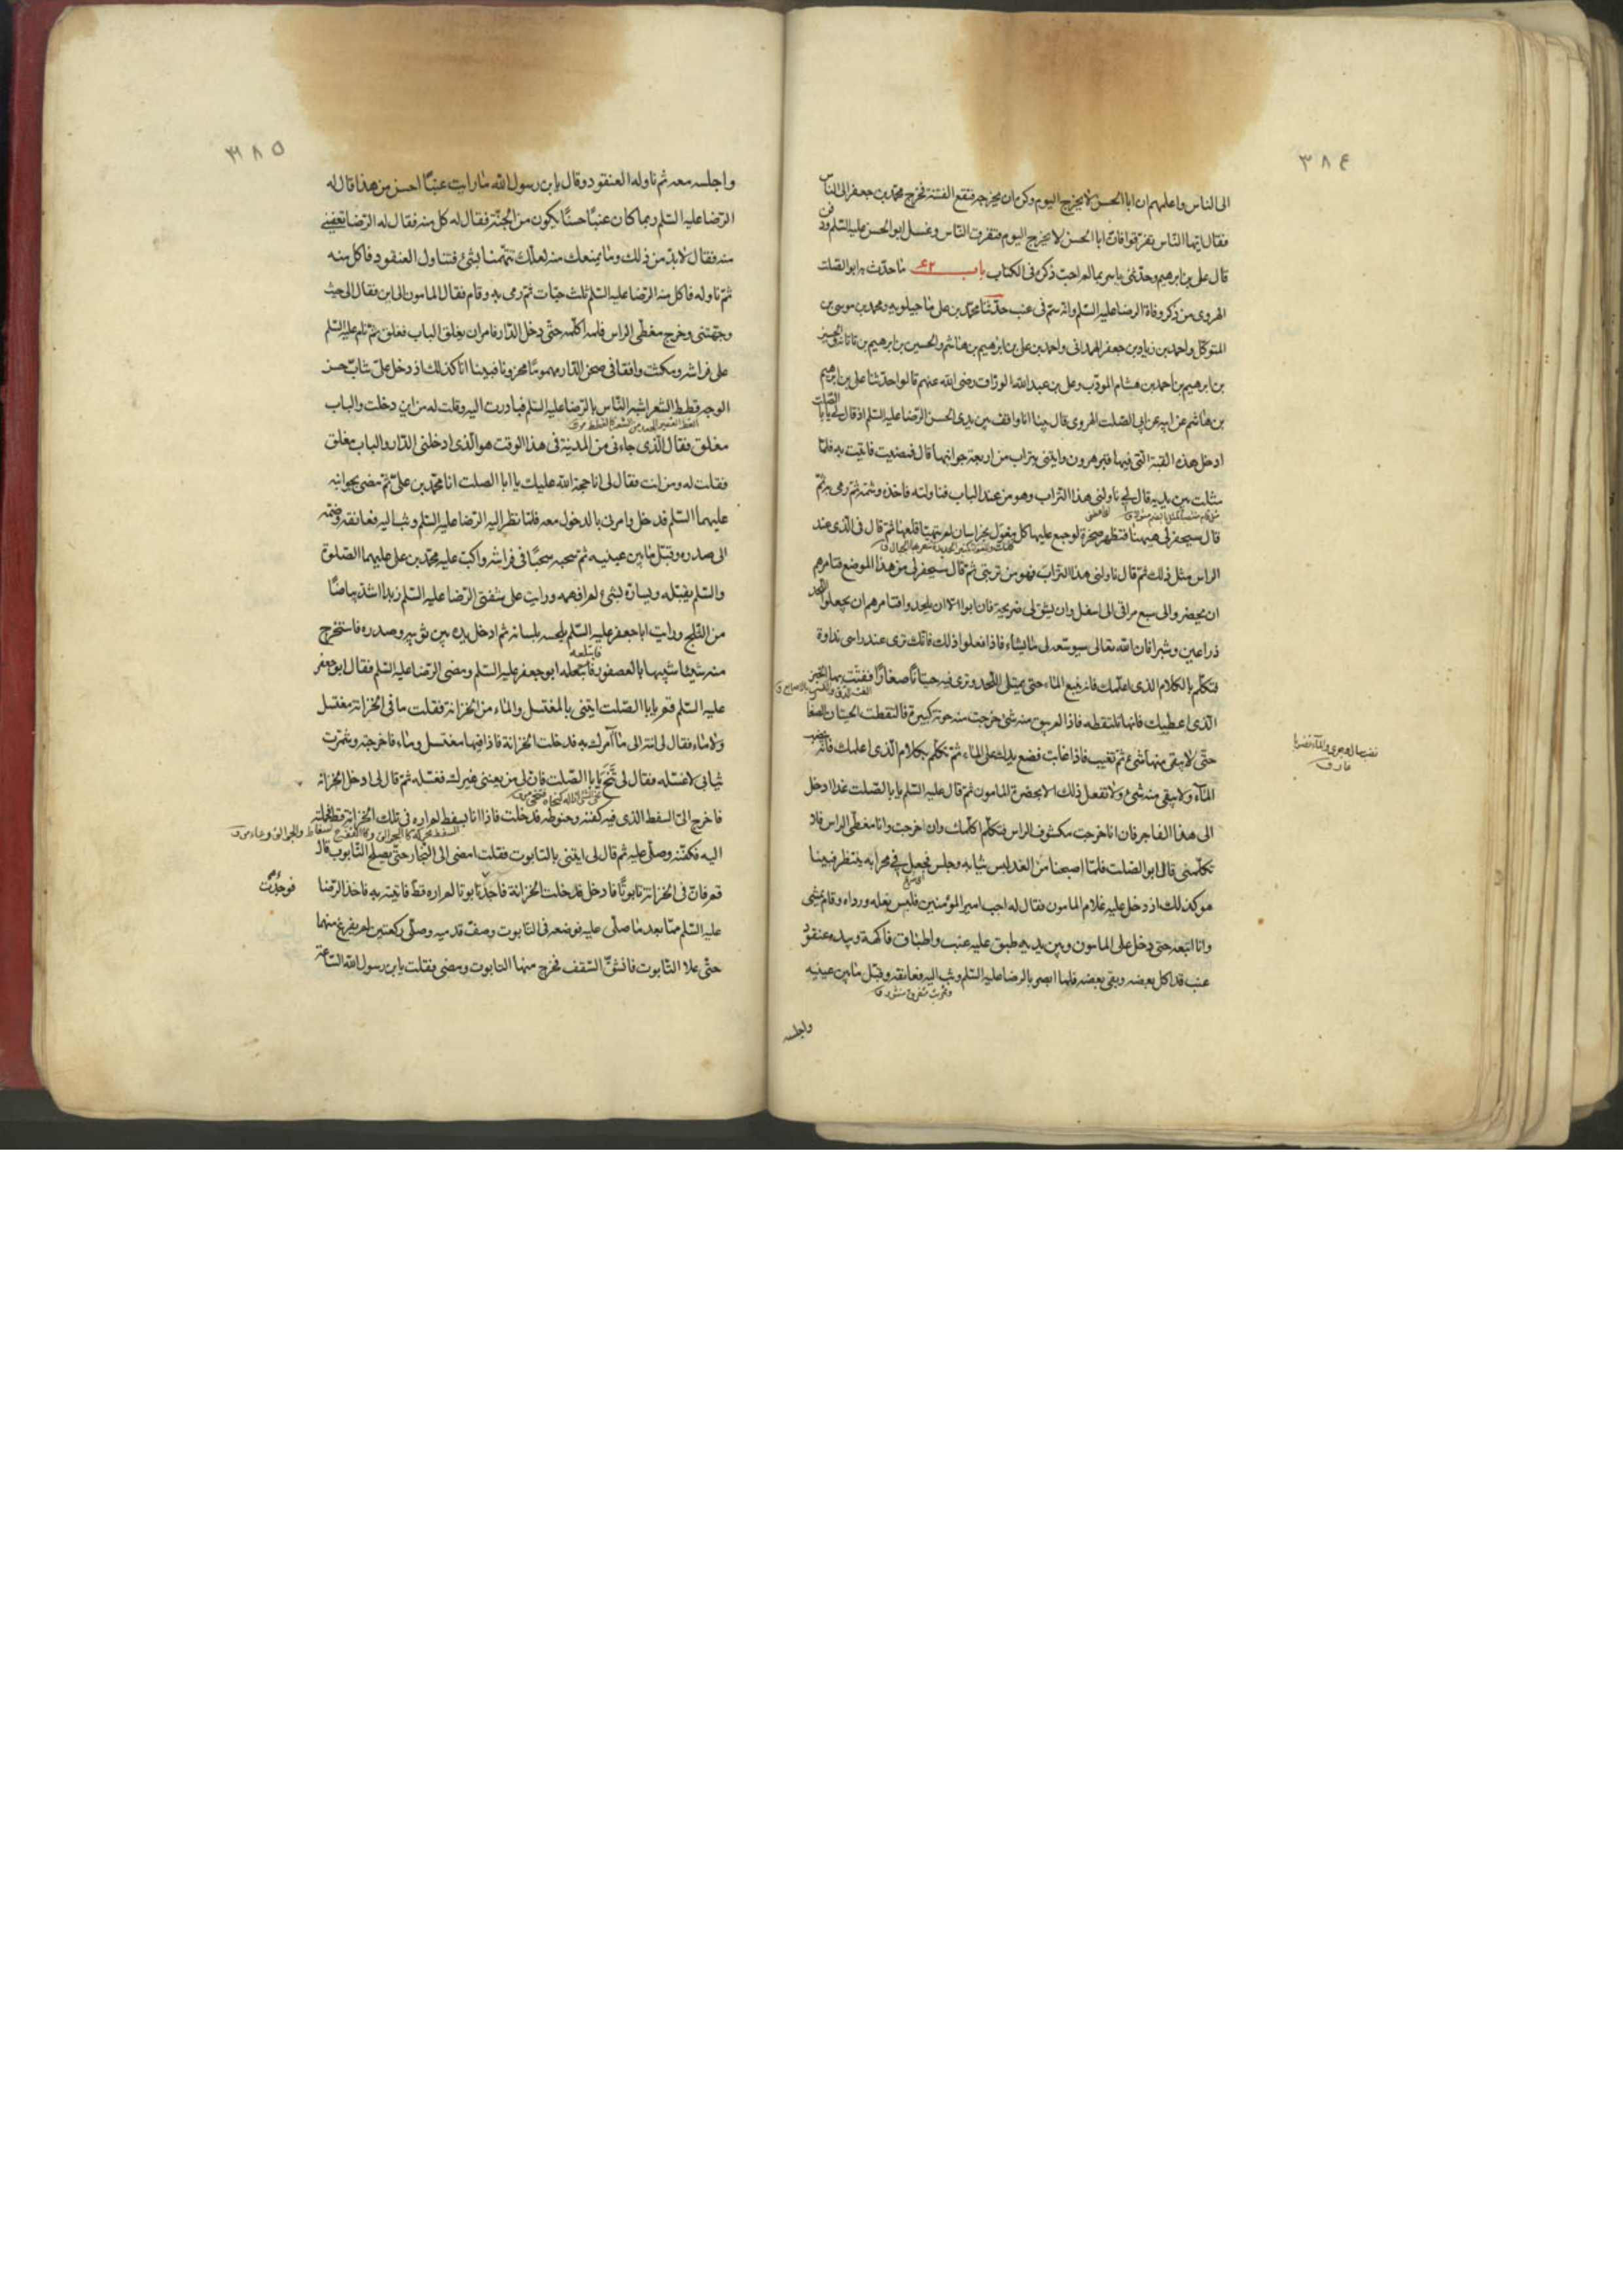 ٣٨٤
الى الناس واعلمهم ان ابا الحسن لا يخرج اليوم وكره ان يخرجه فتقع الفتنة فخرج محمد بن جعفر الى الناس
فقال ايها الناس تفرقوا فان ابا الحسن لا يخرج اليوم فتفرق الناس وغسل ابو الحسن عليه السلم ودفن
قال علي بن ابرهيم وحدثني ياسر بما لم احب ذكره في الكتاب باب ٤٢ ما حدث به ابو الصلت
الهروي من ذكر وفاة الرضا عليه السلم وانه سم في عنب حدثنا محمد بن علي ماجيلويه ومحمد بن موسى بن
المتوكل واحمد بن زياد بن جعفر الهمداني واحمد بن علي بن ابرهيم بن هاشم والحسين بن ابرهيم بن تاتانه والحسين
بن ابرهيم بن احمد بن هشام المودب وعلي بن عبد الله الوراق رضى الله عنهم قالوا حدثنا علي بن ابرهيم
بن هاشم عن ابيه عن ابي الصلت الهروي قال بينا انا واقف بين يدى الحسن الرضا عليه السلم اذ قال لي يا با الصلت
ادخل هذه القبة التي فيها قبر هرون وايتني بتراب من اربعة جوانبها قال فمضيت فاتيت به فلما
مثلت بين يديه قال لي ناولني هذا التراب وهو من عند الباب فناولته فاخذه وشمه ثم رمى به ثم
قال سيحفر لي هيهنا فتظهر صخرة لو جمع عليها كل معول بخراسان لم يتهيا قلعها ثم قال في الذى عند
الراس مثل ذلك ثم قال ناولني هذا التراب فهو من تربتي ثم قال سيحفر لي من هذا الموضع فتامرهم
ان يحفروا لي سبع مراقى الى اسفل وان يشق لي ضريحة فان ابوا الا ان يلحدوا فتامرهم ان يجعلوا اللحد
ذراعين وشبرا فان الله تعالى سيوسعه لي ما يشاء فاذا فعلوا ذلك فانك ترى عند راسى نداوة
فتكلم بالكلام الذى اعلمك فانه ينبع الماء حتى يمتلى اللحد وترى فيه حيتانا صغارا ففتت بها الخبز
الذى اعطيك فانها تلتقطه فاذا لم يبق منه شئ خرجت منه حوتة كبيرة فالتقطت الحيتان الصغا
حتى لا يبقى منها شئ ثم تغيب فاذا غابت فضع يدك على الماء ثم تكلم بكلام الذى اعلمك فانه
الماء ولا يبقى منه شئ ولا تفعل ذلك الا بحضرة المامون ثم قال عليه السلم يا با الصلت غدا ادخل
الى هذا الفاجر فان انا خرجت مكشوف الراس فتكلم اكلمك وان خرجت وانا مغطى الراس فلا
تكلمني قال ابو الصلت فلما اصبحنا من الغد لبس ثيابه وجلس فجعل في محرابه ينتظر فبينا
هو كذلك اذ دخل عليه غلام المامون فقال له اجب امير المؤمنين فلبس نعله ورداه وقام يمشى
وانا اتبعه حتى دخل على المامون وبين يديه طبق عليه عنب واطباق فاكهة وبيده عنقود
عنب قد اكل بعضه وبقى بعضه فلما ابصر بالرضا عليه السلم وثب اليه فعانقه وقبل ما بين عينيه
واجلسه
٣٨٥
واجلسه معه ثم ناوله العنقود وقال يا بن رسول الله ما رايت عنبا احسن من هذا قال له
الرضا عليه السلم ربما كان عنبا حسنا يكون من الجنة فقال له كل منه فقال له الرضا تعفيني
منه فقال لا بد من ذلك وما يمنعك منه لعلك تتهمنا بشئ فتناول العنقود فاكل منه
ثم ناوله فاكل منه الرضا عليه السلم ثلث حبات ثم رمى به وقام فقال المامون الى اين فقال الى حيث
وجهتني وخرج مغطى الراس فلم اكلمه حتى دخل الدار فامر ان يغلق الباب فغلق ثم نام عليه السلم
على فراشه ومكثت واقفا في صحن الدار مهموما محزونا فبينا انا كذلك اذ دخل على شاب حسن
الوجه قطط الشعر اشبه الناس بالرضا عليه السلم فبادرت اليه وقلت له من اين دخلت والباب
مغلق فقال الذى جاء بي من المدينة في هذا الوقت هو الذى ادخلني الدار والباب مغلق
فقلت له ومن انت فقال لي انا حجة الله عليك يا ابا الصلت انا محمد بن علي ثم مضى نحو ابيه
عليهما السلم فدخل وامرني بالدخول معه فلما نظر اليه الرضا عليه السلم وثب اليه فعانقه وضمه
الى صدره وقبل ما بين عينيه ثم سحبه سحبا في فراشه واكب عليه محمد بن علي عليهما الصلوة
والسلم يقبله ويساره بشئ لم افهمه ورايت على شفتى الرضا عليه السلم زبدا اشد بياضا
من الثلج ورايت ابا جعفر عليه السلم يلحسه بلسانه ثم ادخل يده بين ثوبيه وصدره فاستخرج
منه شيئا شبيها بالعصفور فابتلعه ابو جعفر عليه السلم ومضى الرضا عليه السلم فقال ابو جعفر
عليه السلم قم يا با الصلت ايتني بالمغتسل والماء من الخزانة فقلت ما في الخزانة مغتسل
ولا ماء فقال لي انته الى ما آمرك به فدخلت الخزانة فاذا فيها مغتسل وماء فاخرجته وشمرت
ثيابي لاغسله فقال لي تنح يا با الصلت فان لي من يعينني غيرك فغسله ثم قال لي ادخل الخزانة
فاخرج الى السفط الذى فيه كفنه وحنوطه فدخلت فاذا انا بسفط لم اره في تلك الخزانة قط فحملته
اليه فكفنه وصلى عليه ثم قال لي ايتني بالتابوت فقلت امضى الى النجار حتى يصلح التابوت قال
قم فان في الخزانة تابوتا فادخل فدخلت الخزانة فاجد تابوتا لم اره قط فاتيته به فاخذ الرضا
فوجدت
عليه السلم بعد ما صلى عليه فوضعه في التابوت وصف قدميه وصلى ركعتين لم يفرغ منهما
حتى علا التابوت فانشق السقف فخرج منها التابوت ومضى فقلت يا بن رسول الله الساعة